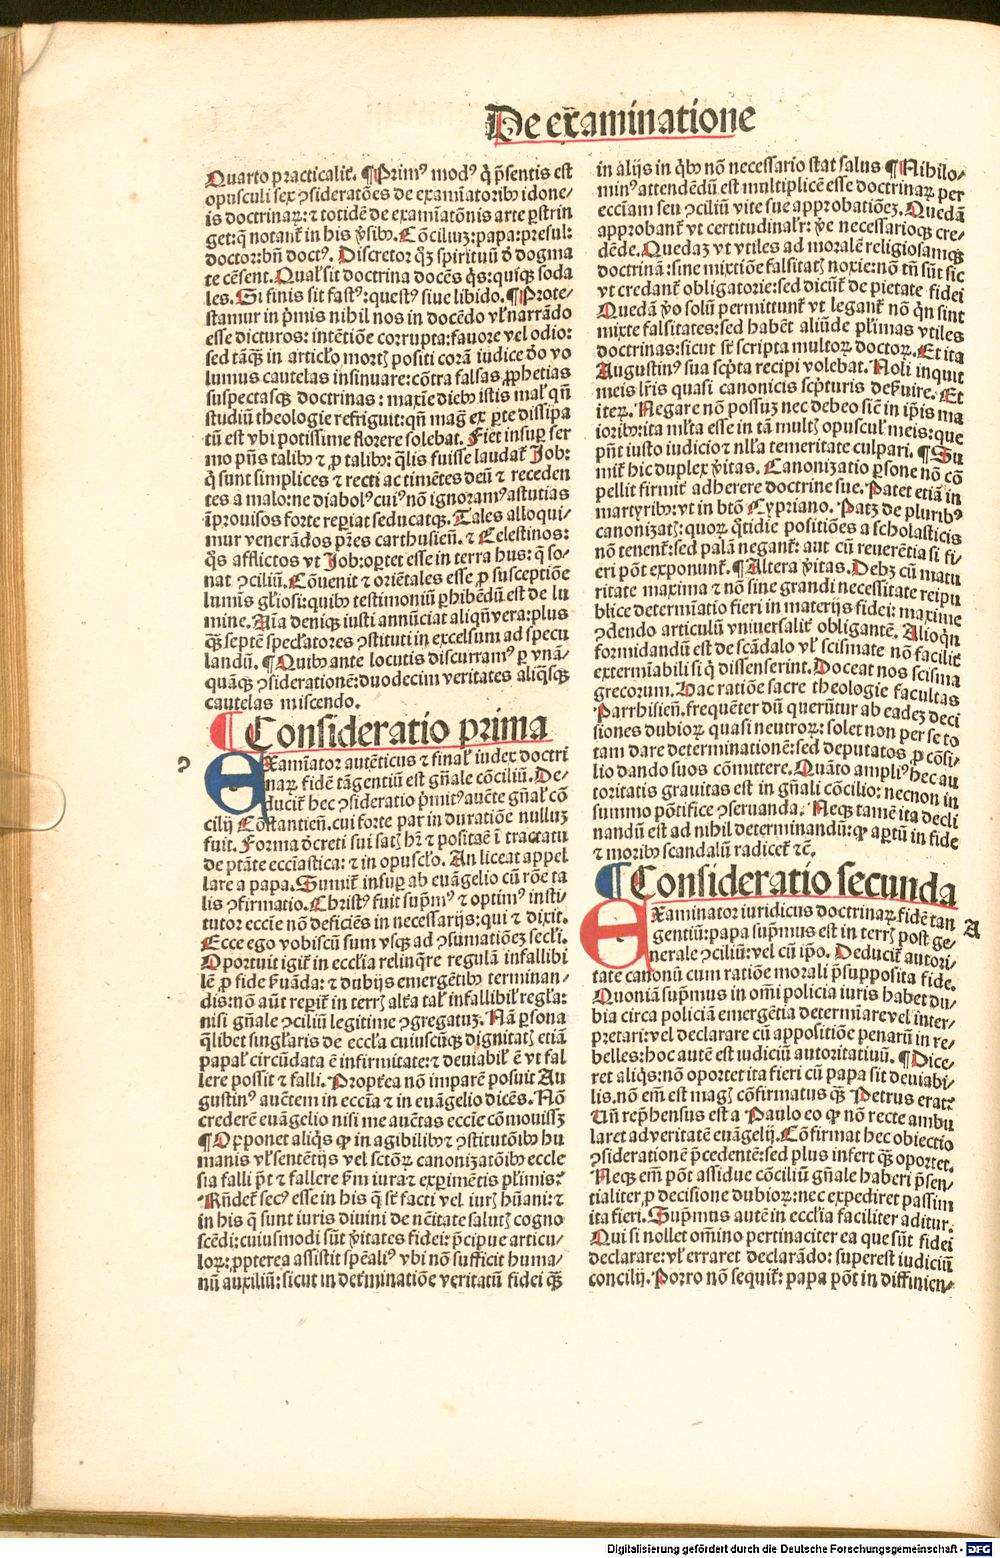 De examinatione
Quarto practicalit̃. ¶Primꝰ modꝰ q̃ p̃sentis est
opusculi sex ꝯsideratões de examĩatoribꝫ idone⸗
is doctrinaꝝ: ⁊ totidẽ de examĩatõnis arte ꝑstrin
get: q̃ notant̃ in his ṽsibꝫ. Cõciliuꝫ: papa: presul:
doctor: bñ doctꝰ. Discretor qꝫ spirituũ ꝺ̃ dogma
te cẽsent. Qual̃ sit doctrina docẽs q̃s: quiqꝫ soda
les. Si finis sit fastꝰ: questꝰ siue libido. ¶Prote⸗
stamur in p̃mis nihil nos in docẽdo vl̃ narrãdo
esse dicturos: intẽtiõe corrupta: fauore vel odio:
sed tãqꝫ in articl̃o mortꝭ positi corã iudice ꝺ̃o vo
lumus cautelas insinuare: cõtra falsas ꝓphetias
suspectasqꝫ doctrinas: maxĩe diebꝫ istis mal̃ qñ
studiũ theologie refriguit: qñ mag̃ ex ꝑte dissipa
tũ est vbi potissime florere solebat. Fiet insuꝑ ser
mo p̃ñs talibꝫ ⁊ ꝓ talibꝫ: q̃lis fuisse laudat̃ Job:
q̃ sunt simplices ⁊ recti ac timẽtes deũ ⁊ receden
tes a malo: ne diabolꝰ cuiꝰ nõ ignoramꝰ astutias
ĩprouisos forte reꝑiat seducatqꝫ. Tales alloqui⸗
mur venerãdos pr̃es carthusieñ. ⁊ Celestinos:
q̃s afflictos vt Job: oꝑtet esse in terra hus: q̃ so⸗
nat ꝯciliũ. Cõuenit ⁊ oriẽtales esse ꝓ susceptiõe
lumĩs gl̃iosi: quibꝫ testimoniũ ꝑhibẽdũ est de lu
mine. Aĩa deniqꝫ iusti annũciat aliqñ vera: plus
qꝫ septẽ specl̃atores ꝯstituti in excelsum ad specu
landũ. ¶Quibꝫ ante locutis discurramꝰ ꝑ vnã⸗
quãqꝫ ꝯsiderationẽ: duodecim veritates aliqꝫsqꝫ
cautelas miscendo.
¶Consideratio prima
Examĩator autẽticus ⁊ final̃ iudex doctri
naꝝ fidẽ tãgentiũ est gñale cõciliũ. De⸗
ducit̃ hec ꝯsideratio p̃mitꝰ aucte gñal̃ cõ
cilij Cõstantieñ. cui forte par in duratiõe nulluꝫ
fuit. Forma ꝺ̃creti sui satꝭ hr̃ ⁊ positaẽ ĩ tractatu
de ptãte eccĩastica: ⁊ in opuscl̃o. An liceat appel
lare a papa. Sumit̃ insuꝑ ab euãgelio cũ rõe ta
lis ꝯfirmatio. Christꝰ fuit sup̃mꝰ ⁊ optimꝰ insti⸗
tutor eccĩe nõ deficiẽs in necessarijs: qui ⁊ dixit.
Ecce ego vobiscũ sum vsqꝫ ad ꝯsumatiõeꝫ secl̃i.
Oportuit igit̃ in eccl̃ia relinq̃re regulã infallibi
lẽ ꝓ fide ẽuãda: ⁊ dubijs emergẽtibꝫ terminan⸗
dis: nõ aũt reꝑit̃ in terrꝭ al̃ta tal̃ infallibil̃ regl̃a:
nisi gñale ꝯciliũ legitime ꝯgregatuꝫ. Nã ꝑsona
q̃libet sungl̃aris de eccl̃a cuiuscũqꝫ dignitatꝭ etiã
papal̃ circũdata ẽ infirmitate: ⁊ deuiabil̃ ẽ vt fal
lere possit ⁊ falli. Propt̃ea nõ imparẽ posuit Au
gustinꝰ auctem in eccĩa ⁊ in euãgelio dicẽs. Nõ
crederẽ euãgelio nisi me auctas eccĩe cõmouissꝫ
¶Opponet aliq̃s ꝙ in agibilibꝫ ⁊ ꝯstitutõibꝫ hu
manis vl̃ sententijs vel sctõꝝ canonizatõibꝫ eccle
sia falli p̃t ⁊ fallere ẽm iura ⁊ experimẽtis pl̃imis:
Rñdet̃ secꝰ esse in his q̃ sr̃ facti vel iurꝭ hũani: ⁊
in his q̃ sunt iuris diuini de ncẽitate salutꝭ cogno
scẽdi: cuiusmodi sũt ṽitates fidei: p̃cipue articu⸗
loꝝ: ꝓpterea assistit sp̃eãliꝰ vbi nõ sufficit huma⸗
nũ auxiliũ: sicut in deter̃minatiõe veritatũ fidei qꝫ
in alijs in q̃bꝫ nõ necessario stat salus ¶Nihilo⸗
minꝰ attendẽdũ est multiplicẽ esse doctrinaꝝ per
eccĩam seu ꝯciliũ vite sue approbatiõeꝫ. Quedã
approbant̃ vt certitudinal̃r: ṽe necessarioqꝫ cre⸗
dẽde. Quedaꝫ vt vtiles ad moralẽ religiosamqꝫ
doctrinã: sine mixtiõe falsitatꝭ noxie: nõ tñ sũt sic
vt credant̃ obligatorie: sed dicũt̃ de pietate fidei
Quedã ṽo solũ permittunt̃ vt legant̃ nõ q̃n sint
mixte falsitates: sed habẽt aliũde pl̃imas vtiles
doctrinas: sicut sr̃ scripta multoꝝ doctoꝝ. Et ita
Augustinꝰ sua scp̃ta recipi volebat. Noli inquit
meis lr̃is quasi canonicis scp̃turis deẽuire. Et
iteꝝ. Negare nõ possuꝫ nec debeo sic̃ in ip̃is ma
ioribꝫ: ita ml̃ta esse in tã multꝭ opuscul̃ meis: que
pñt iusto iudicio ⁊ nl̃la temeritate culpari. ¶Su
mit̃ hic duplex ṽitas. Canonizatio ꝑsone nõ cõ
pellit firmit̃ adherere doctrine sue. Patet etiã in
martyribꝫ: vt in btõ Cypriano. Patꝫ de pluribꝰ
canonizatꝭ: quoꝝ q̃tidie positiões a scholasticis
nõ tenent̃: sed palã negant̃: aut cũ reuerẽtia si fi⸗
eri põt exponunt̃. ¶Altera ṽitas. Debꝫ cũ matu
ritate maxima ⁊ nõ sine grandi necessitate reipu
blice determĩatio fieri in materijs fidei: maxime
ꝯdendo articulũ vniuersalit̃ obligantẽ. Alioq̃n
formidandũ est de scãdalo vl̃ scismate nõ facilit̃
extermĩabili si q̃ dissenserint. Doceat nos scisma
grecorum. Hac ratiõe sacre theologie facultas
Parrhisieñ. frequẽter dũ querũtur ab eadeꝫ deci
siones dubioꝝ quasi neutroꝝ: solet non per se to
tam dare determinationẽ: sed deputatos ꝓ cõsi⸗
lio dando suos cõmittere. Quãto ampliꝰ hec au
toritatis grauitas est in gñali cõcilio: necnon in
summo põtifice ꝯseruanda. Neqꝫ tamẽ ita decli
nandũ est ad nihil determinandũ: ꝙ aꝑtũ in fide
⁊ moribꝫ scandalũ radicet̃ ⁊c̃.
¶Consideratio secunda
Examinator iuridicus doctrinaꝝ fidẽ tan
gentiũ: papa sup̃mus est in terrꝭ post ge⸗
nerale ꝯciliũ: vel cũ ip̃o. Deducit̃ autori⸗
A
tate canonũ cum ratiõe morali p̃supposita fide.
Quoniã sup̃mus in om̃i policia iuris habet du⸗
bia circa policiã emergẽtia determĩare vel inter⸗
pretari: vel declarare cũ appositiõe penarũ in re⸗
belles: hoc autẽ est iudiciũ autoritatiuũ. ¶Dice⸗
ret aliq̃s: nõ oportet ita fieri cũ papa sit deuiabi⸗
lis. nõ em̃ est magꝭ cõfirmatus qꝫ Petrus erat:
⁊ tñ rep̃hensus est a Paulo eo ꝙ nõ recte ambu
laret ad veritatẽ euãgelij. Cõfirmat hec obiectio
ꝯsiderationẽ p̃cedentẽ: sed plus infert qꝫ oportet.
Neqꝫ em̃ põt assidue cõciliũ gñale haberi p̃sen⸗
tialiter ꝓ decisione dubioꝝ: nec expediret passim
ita fieri. Sup̃mus autẽ in eccl̃ia faciliter aditur.
Qui si nollet om̃ino pertinaciter ea que sũt fidei
declarare: vl̃ erraret declarãdo: superest iudiciũ
concilij. Porro nõ sequit̃: papa põt in diffinien⸗
Digitalisierung gefördert durch die Deutsche Forschungsgemeinschaft - DFG